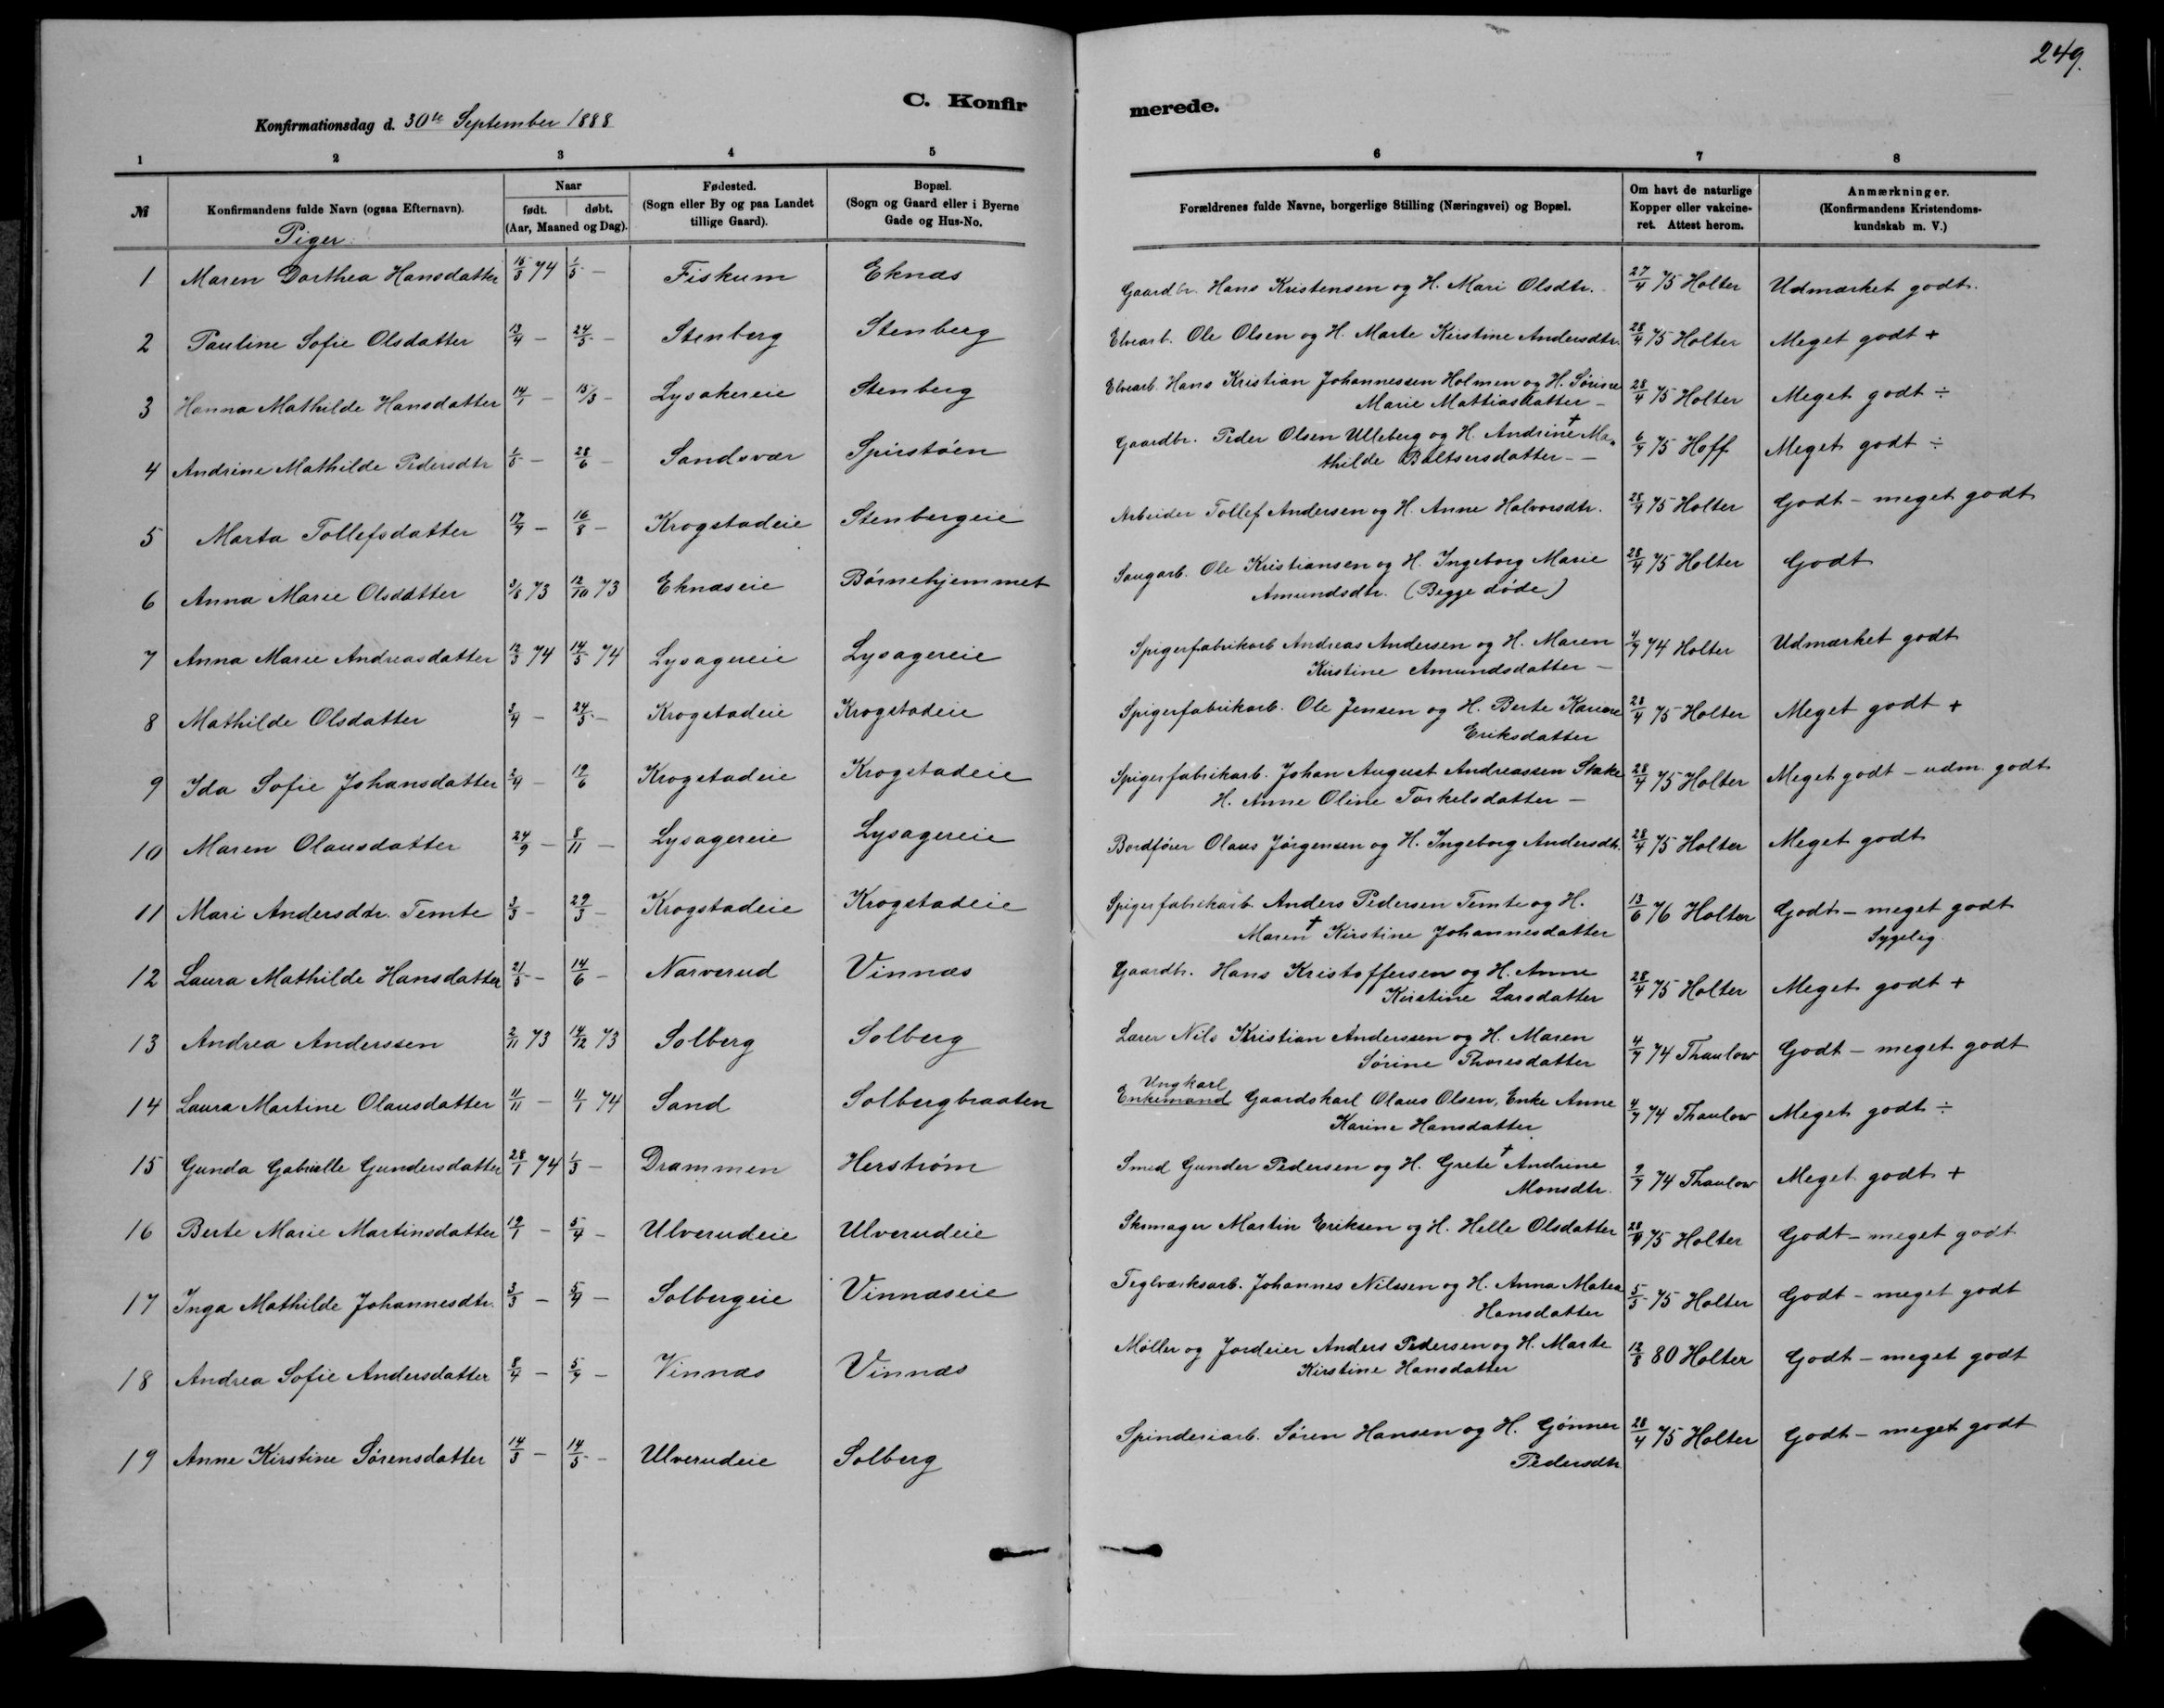 249.
C. Konfirmerede.
Konfirmationsdag d. 30te September 1888
1 2 3 4 5 6 7 8
№ Konfirmandens fulde Navn (ogsaa Efternavn). Naar født. døbt. (Aar, Maaned og Dag). Fødested. (Sogn eller By og paa Landet tillige Gaard). Bopæl. (Sogn og Gaard eller i Byerne Gade og Hus-No. Forældrenes fulde Navne, borgerlige Stilling (Næringsvei) og Bopæl. Om havt de naturlige Kopper eller vakcineret. Attest herom. Anmærkninger. (Konfirmandens Kristendomskundskab m. V.)
Piger
1 Maren Dorthea Hansdatter 74 1/5 — Fiskum Eknæs Gaardbr. Hans Kristensen og H. Mari Olsdtr. 27/4 75 Holter Udmærket godt.
2 Pauline Sofie Olsdatter 13/4 — 24/5 — Stenberg Stenberg Elvearb. Ole Olsen og H. Marte Kirstine Andersdtr. 28/4 75 Holter Meget godt +
3 Hanna Mathilde Hansdatter 14/1 — 15/3 — Lysakereie Stenberg Elvearb. Hans Kristian Johannessen Holmen og H. Sørine
Marie Mattiasdatter — 28/4 75 Holter Meget godt ÷
4 Andrine Mathilde Pedersdtr 1/5 — 28/6 — Sandsvær Spirstøen Gaardbr. Peder Olsen Ulleberg og H. Andrine † Ma-
thilde Baltsersdatter — 75 Hoff Meget godt ÷
5 Marta Tollefsdatter — 16/8 — Krogstadeie Stenbergeie Arbeider Tollef Andersen og H. Anne Halvorsdtr. 28/4 75 Holter Godt — meget godt
6 Anna Marie Olsdatter 3/8 73 12/10 73 Eknæseie Børnehjemmet Saugarb. Ole Kristiansen og H. Ingeborg Marie
Amundsdtr. (Begge døde) 28/4 75 Holter Godt
7 Anna Marie Andreasdatter 12/3 74 14/5 74 Lysagereie Lysagereie Spigerfabrikarb Andreas Andersen og H. Maren
Kirstine Amundsdatter — 4/7 74 Holter Udmærket godt
8 Mathilde Olsdatter 3/4 — 24/5 — Krogstadeie Krogstadeie Spigerfabrikarb. Ole Jensen og H. Berte Karine
Eriksdatter 28/4 75 Holter Meget godt +
9 Ida Sofie Johansdatter 2/4 — 19/6 Krogstadeie Krogstadeie Spigerfabrikarb. Johan August Andreassen Stake
H. Anne Oline Torkelsdatter — 28/4 75 Holter Meget godt — udm. godt
10 Maren Olausdatter 24/9 — 8/11 — Lysagereie Lysagereie Bordfører Olaus Jørgensen og H. Ingeborg Andersdtr. 28/4 75 Holter Meget godt
11 Mari Andersdtr. Temte 3/3 — 29/3 — Krogstadeie Krogstadeie Spigerfabrikarb. Anders Pedersen Temte og H.
Maren † Kirstine Johannesdatter 13/6 76 Holter Godt — meget godt
Sygelig
12 Laura Mathilde Hansdatter 21/5 — 14/6 — Narverud Vinnæs Gaardbr. Hans Kristoffersen og H. Anne
Kirstine Larsdatter 28/4 75 Holter Meget godt +
13 Andrea Anderssen 2/11 73 14/12 73 Solberg Solberg Lærer Nils Kristian Anderssen og H. Maren
Sørine Thoresdatter 4/7 74 Thaulow Godt — meget godt
14 Laura Martine Olausdatter 11/11 — 11/1 74 Sand Solbergbraaten Ungkarl
Enkemand Gaardskarl Olaus Olsen, Enke Anne
Karine Hansdatter 4/7 74 Thaulow Meget godt ÷
15 Gunda Gabrielle Gundersdatter 28/1 74 1/3 — Drammen Herstrøm Smed Gunder Pedersen og H. Grete † Andrine
Monsdtr. 9/7 74 Thaulow Meget godt +
16 Berte Marie Martinsdatter 19/1 — 5/4 — Ulverudeie Ulverudeie Skomager Martin Eriksen og H. Helle Olsdatter 28/4 75 Holter Godt — meget godt
17 Inga Mathilde Johannesdtr. 3/3 — — Solbergeie Vinnæseie Teglværksarb. Johannes Nilssen og H. Anna Matea
Hansdatter 5/5 75 Holter Godt — meget godt
18 Andrea Sofie Andersdatter 8/4 — — Vinnæs Vinnæs Møller og Jordeier Anders Pedersen og H. Marte
Kirstine Hansdatter 12/8 80 Holter Godt — meget godt
19 Anne Kirstine Sørensdatter 14/3 — 14/5 — Ulverudeie Solberg Spinderiarb. Søren Hansen og H. Gønner
Pedersdtr. 28/4 75 Holter Godt — meget godt